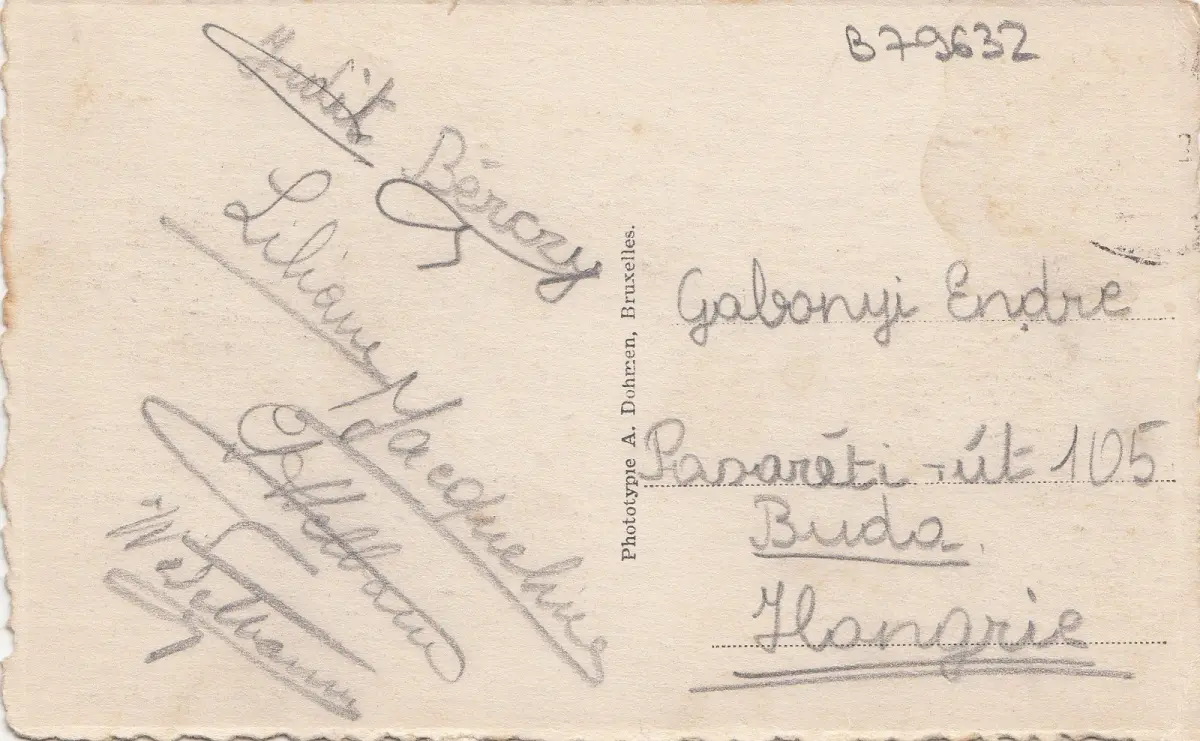 B79632
Judit Bérczy
Liliane
Jacqueline
Phototypie A. Dohmen, Bruxelles.
Gabonyi Endre
Pasaréti-út 105
Buda.
Hongrie